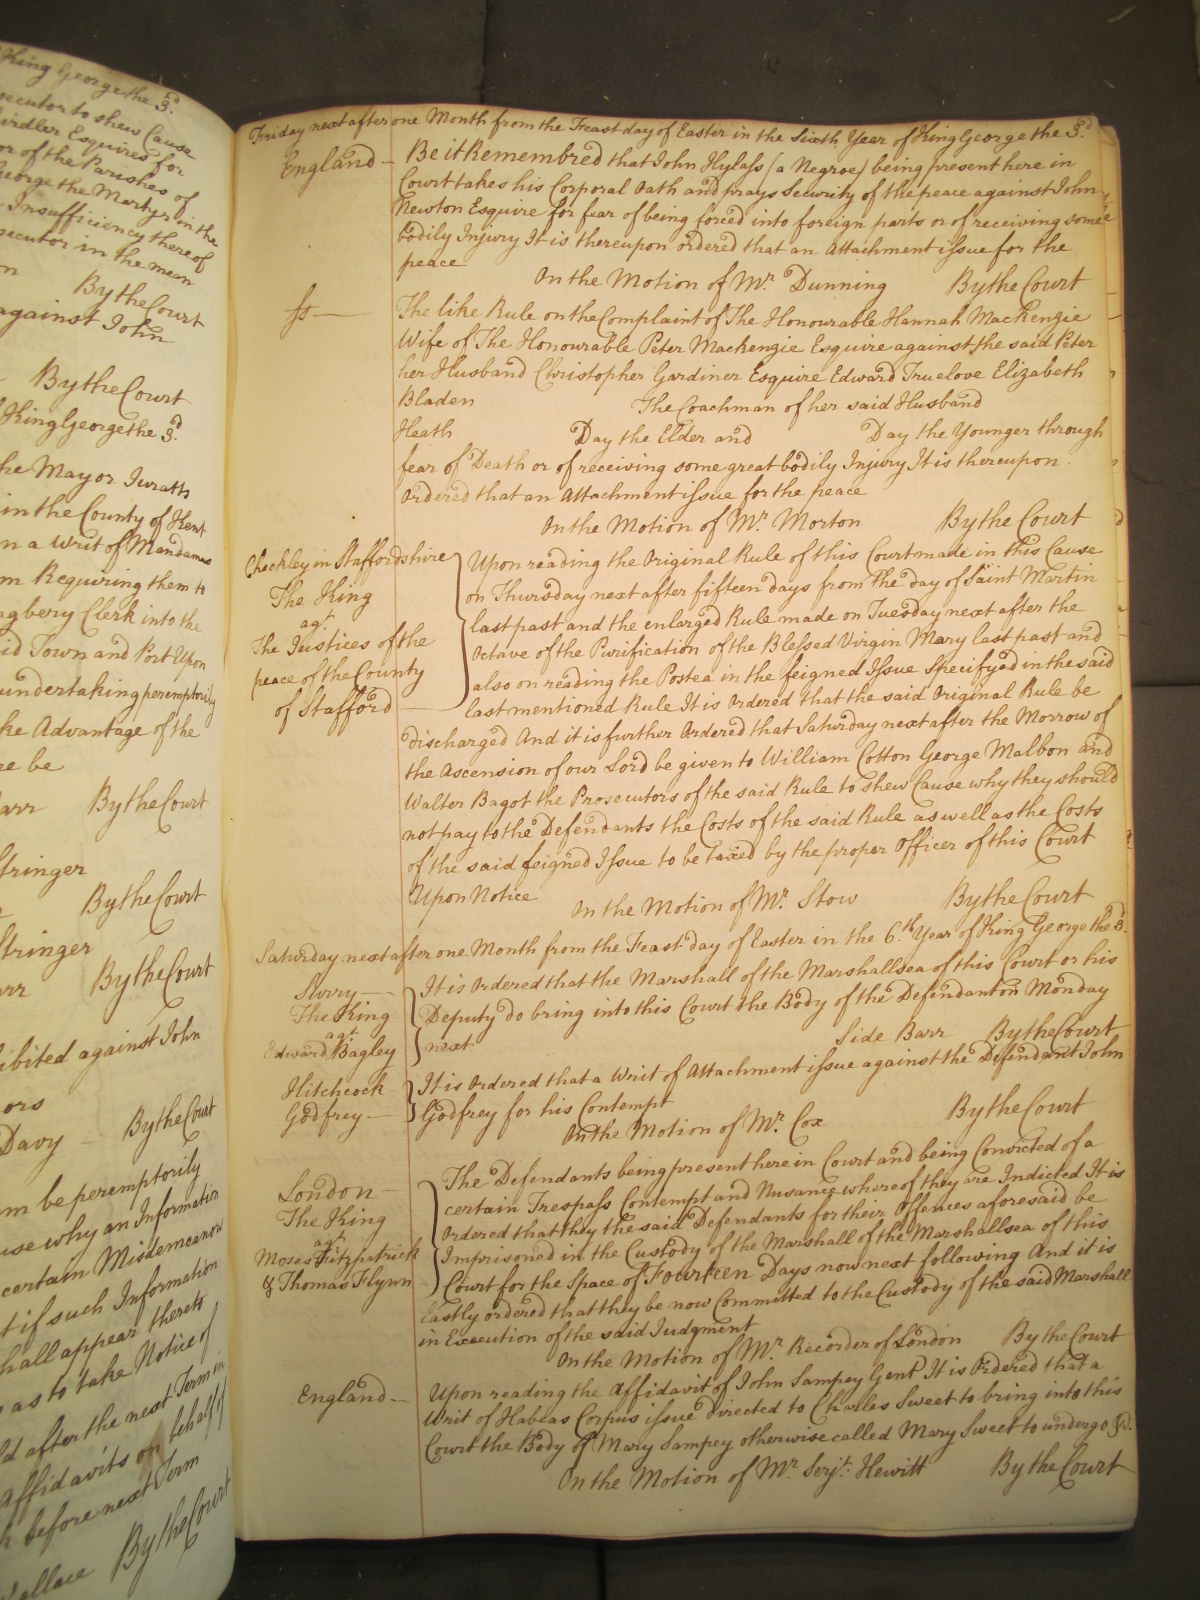 King George the 3.d
secutor to shew Cause
irdler Esquires for
or of the Parishes of
George the Martyr in the
Insufficiency thereof
secutor in the mean
By the Court
against John
By the Court
King George the 3.d
he Mayor Jurats
in the County of Kent
n a Writ of Mandamus
m Requiring them to
agbery Clerk into the
id Town and Port Upon
undertaking peremptorily
ke Advantage of the
re be
arr By the Court
Stringer
By the Court
Stringer
arr By the Court
ibited against John
ors
Davy – By the Court
m be peremptorily
use why an Information
certain Misdemeanor
t if such Information
hall appear thereto
as to take Notice of
ld after the next Term in
Affidavits on behalf of
h before next Term
Wallace By the Court
Friday next after one Month from the Feast day of Easter in the Sixth Year of King George the 3.d
England – Be it Remembred that John Hylass (a Negroe) being present here in
Court takes his Corporal Oath and prays Security of the peace against John
Newton Esquire for fear of being forced into foreign parts or of receiving some
bodily Injury It is thereupon ordered that an Attachment issue for the
peace
On the Motion of Mr. Dunning By the Court
ss — The like Rule on the Complaint of The Honourable Hannah Mackenzie
Wife of The Honourable Peter Mackenzie Esquire against the said Peter
her Husband Christopher Gardiner Esquire Edward Truelove Elizabeth
Bladen The Coachman of her said Husband
Heath Day the Elder and Day the Younger through
fear of Death or of receiving some great bodily Injury It is thereupon
ordered that an Attachment issue for the peace
On the Motion of Mr. Morton By the Court
Checkley in Staffordshire
The King
agt.
The Justices of the
peace of the County
of Stafford —
Upon reading the Original Rule of this Court made in this Cause
on Thursday next after fifteen days from the day of Saint Martin
last past and the enlarged Rule made on Tuesday next after the
Octave of the Purification of the Blessed Virgin Mary last past and
also on reading the Postea in the feigned Issue Specifyed in the said
last mentioned Rule It is Ordered that the said Original Rule be
discharged And it is further Ordered that Saturday next after the Morrow of
the Ascension of our Lord be given to William Cotton George Malbon and
Walter Bagot the Prosecutors of the said Rule to shew Cause why they should
not pay to the Defendants the Costs of the said Rule as well as the Costs
of the said feigned Issue to be taxed by the proper Officer of this Court
Upon Notice
On the Motion of Mr. Stow By the Court
Saturday next after one Month from the Feast day of Easter in the 6.th Year of King George the 3.d
Surry —
The King
agt.
Edward Bagley
It is Ordered that the Marshall of the Marshallsea of this Court or his
Deputy do bring into this Court the Body of the Defendant on Monday
next Side Barr By the Court
Hitchcock
Godfrey —
It is Ordered that a Writ of Attachment issue against the Defendant John
Godfrey for his Contempt
On the Motion of Mr. Cox By the Court
London –
The King
agt.
Moses Fitzpatrick
& Thomas Flynn –
The Defendants being present here in Court and being Convicted of a
certain Trespass Contempt and Nusance whereof they are Indicted It is
Ordered that they the said Defendants for their Offences aforesaid be
Imprisoned in the Custody of the Marshall of the Marshallsea of this
Court for the Space of Fourteen Days now next following And it is
lastly ordered that they be now Committed to the Custody of the said Marshall
in Execution of the said Judgment
On the Motion of Mr. Recorder of London By the Court
England – Upon reading the Affidavit of John Sampey Gent It is Ordered that a
Writ of Habeas Corpus issue directed to Charles Sweet to bring into this
Court the Body of Mary Sampey otherwise called Mary Sweet to undergo &c.
On the Motion of Mr. Serjt. Hewitt By the Court